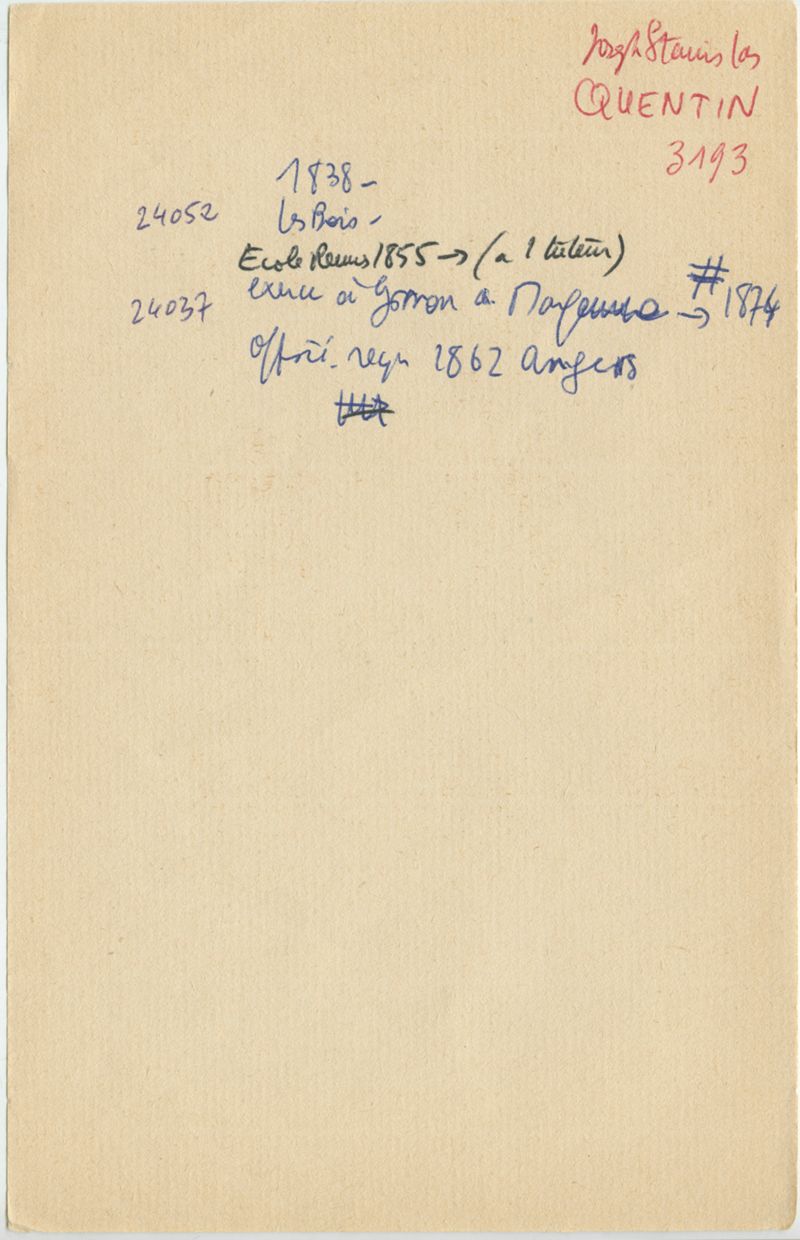 Joseph Stanislas
QUENTIN
3193
1838 -
24052 les Bois -
Ecole Rennes 1855 → (a 1 tuteur)
24037 exerce à Gorron a → 1874
Offici. reçu 1862 Angers